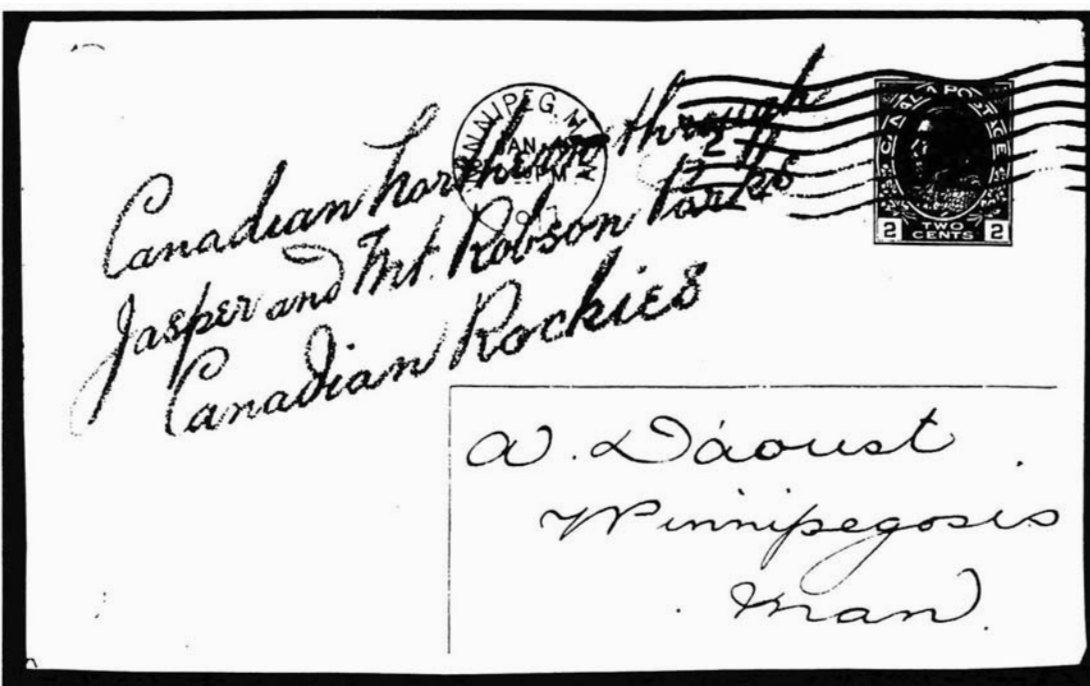 Canadian Northern through
Jasper and Mt. Robson Parks
Canadian Rockies
WINNIPEG
JAN
PM
CANADA POSTAGE
2 TWO CENTS 2
A. D'aoust
Winnipegosis
Man.